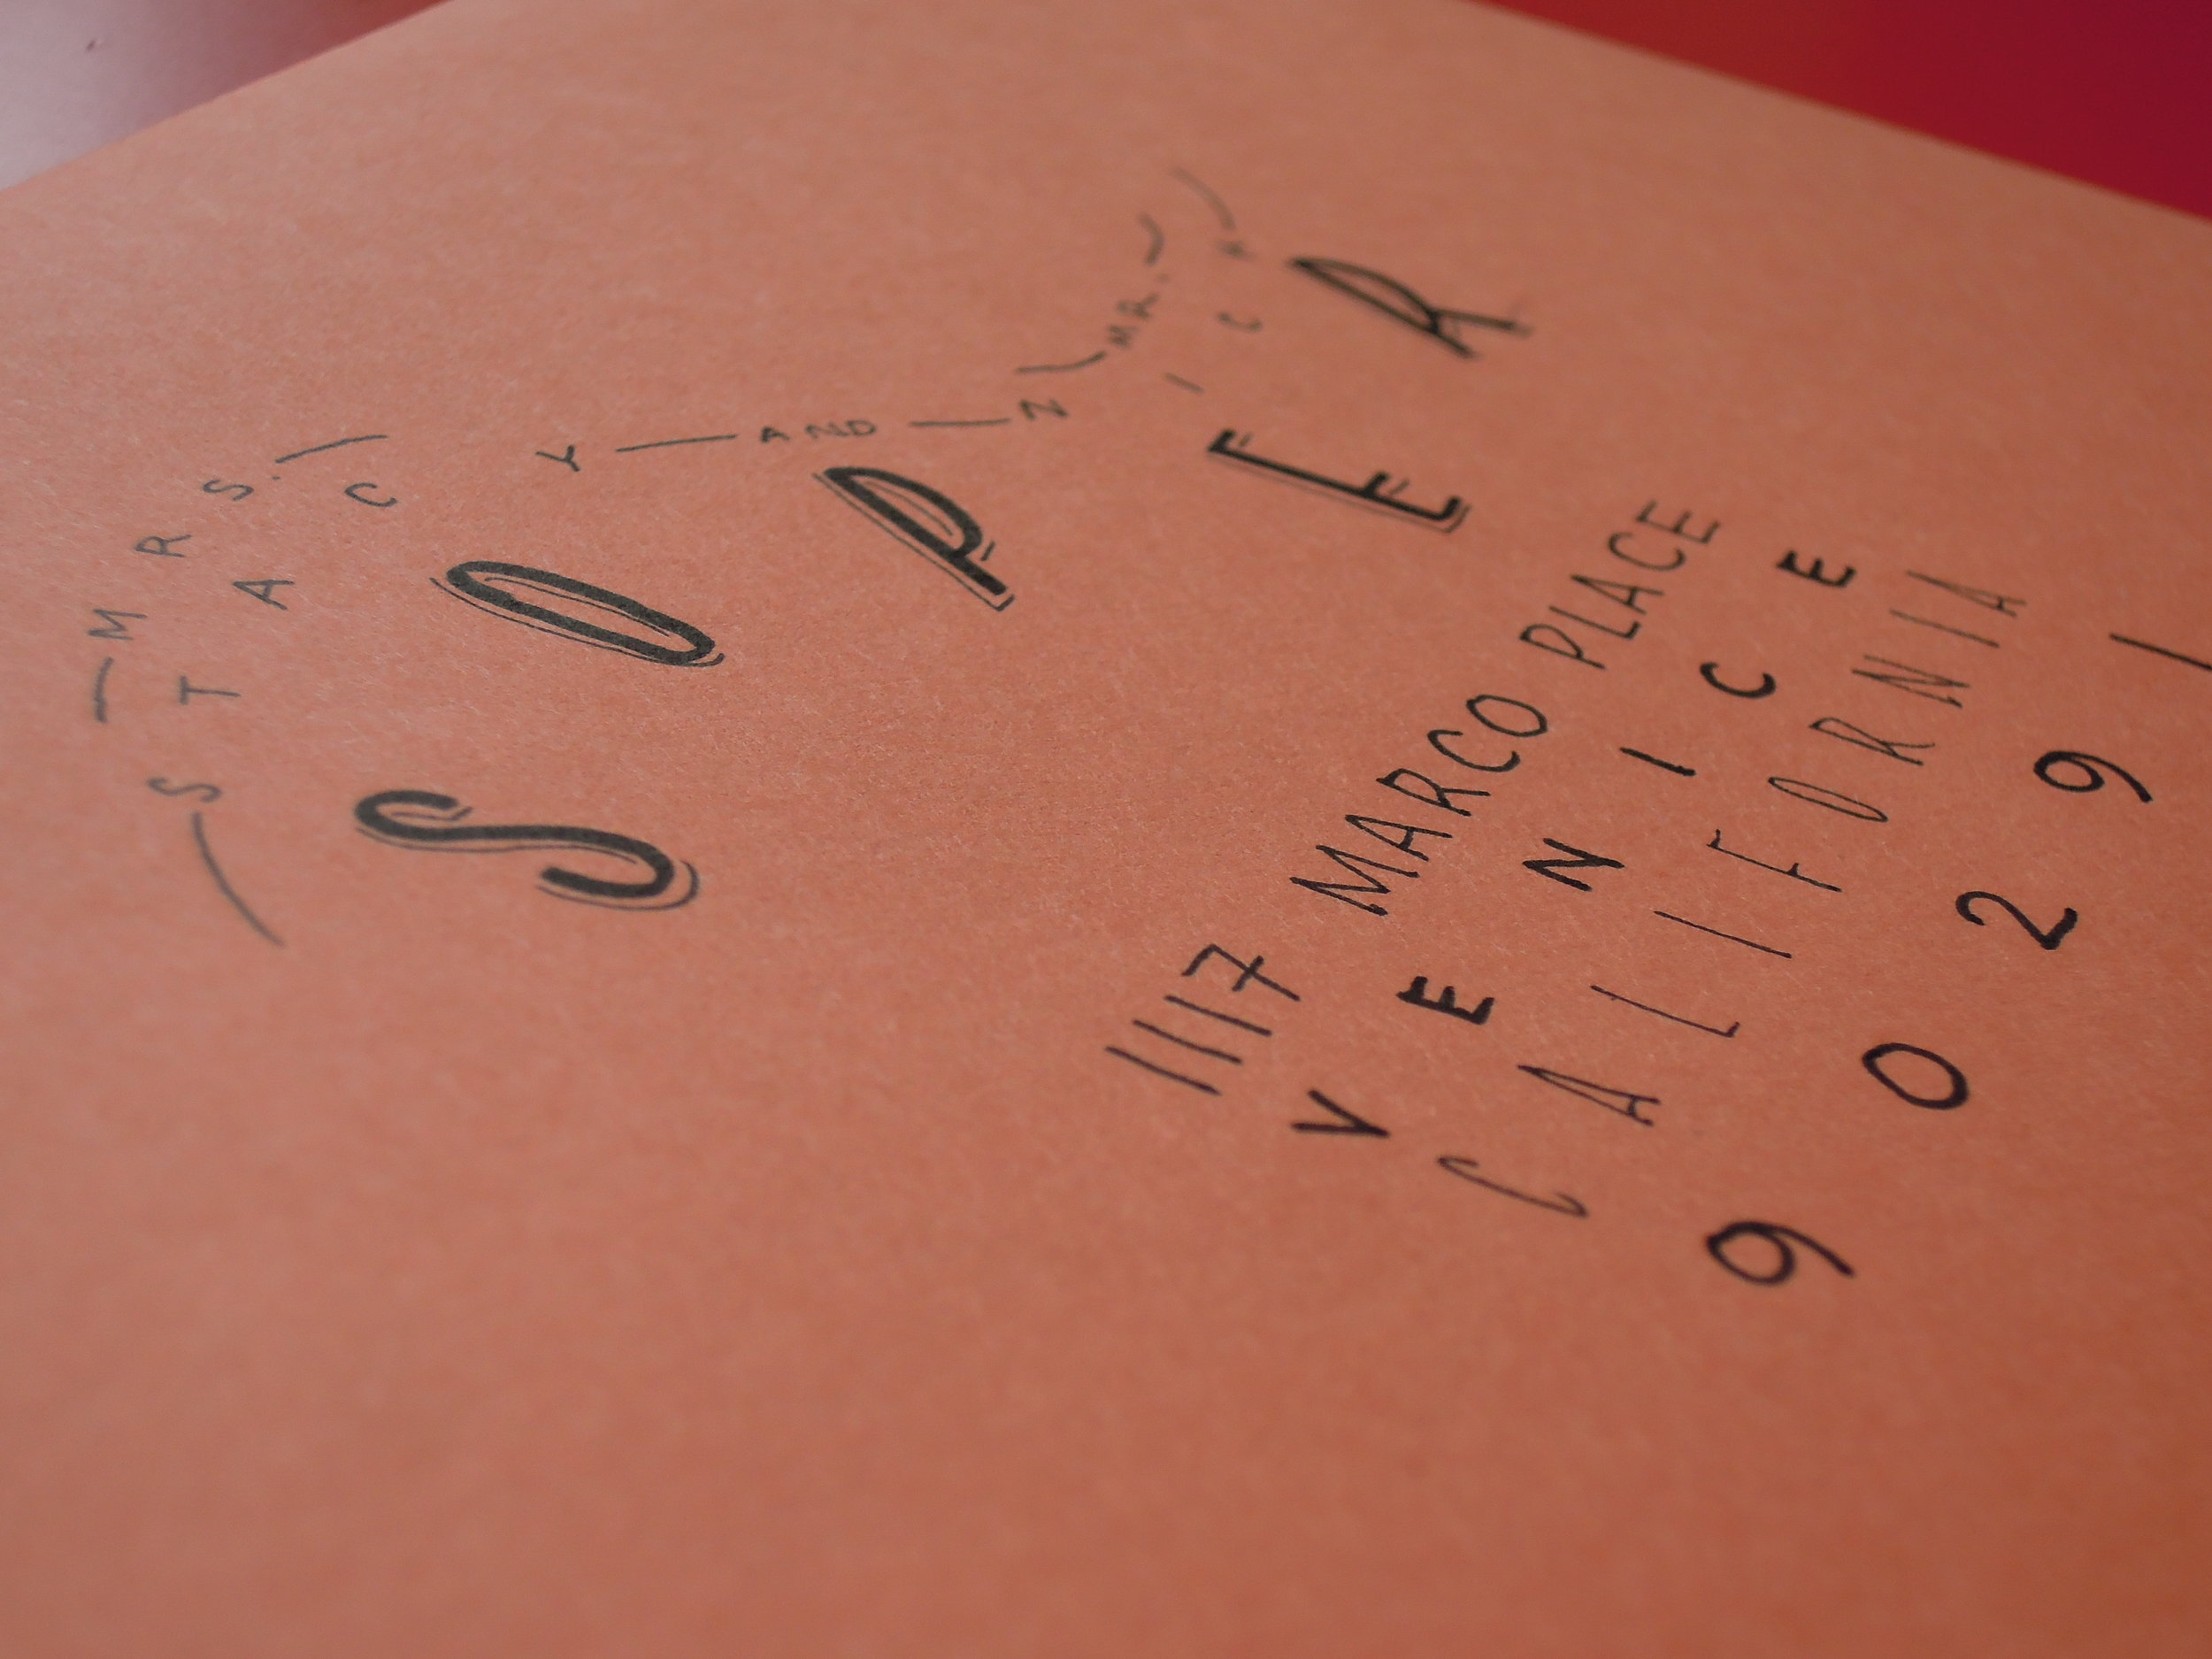 MRS. MR.
STACY AND NICK
SOPER
1117 MARCO PLACE
VENICE
CALIFORNIA
90291